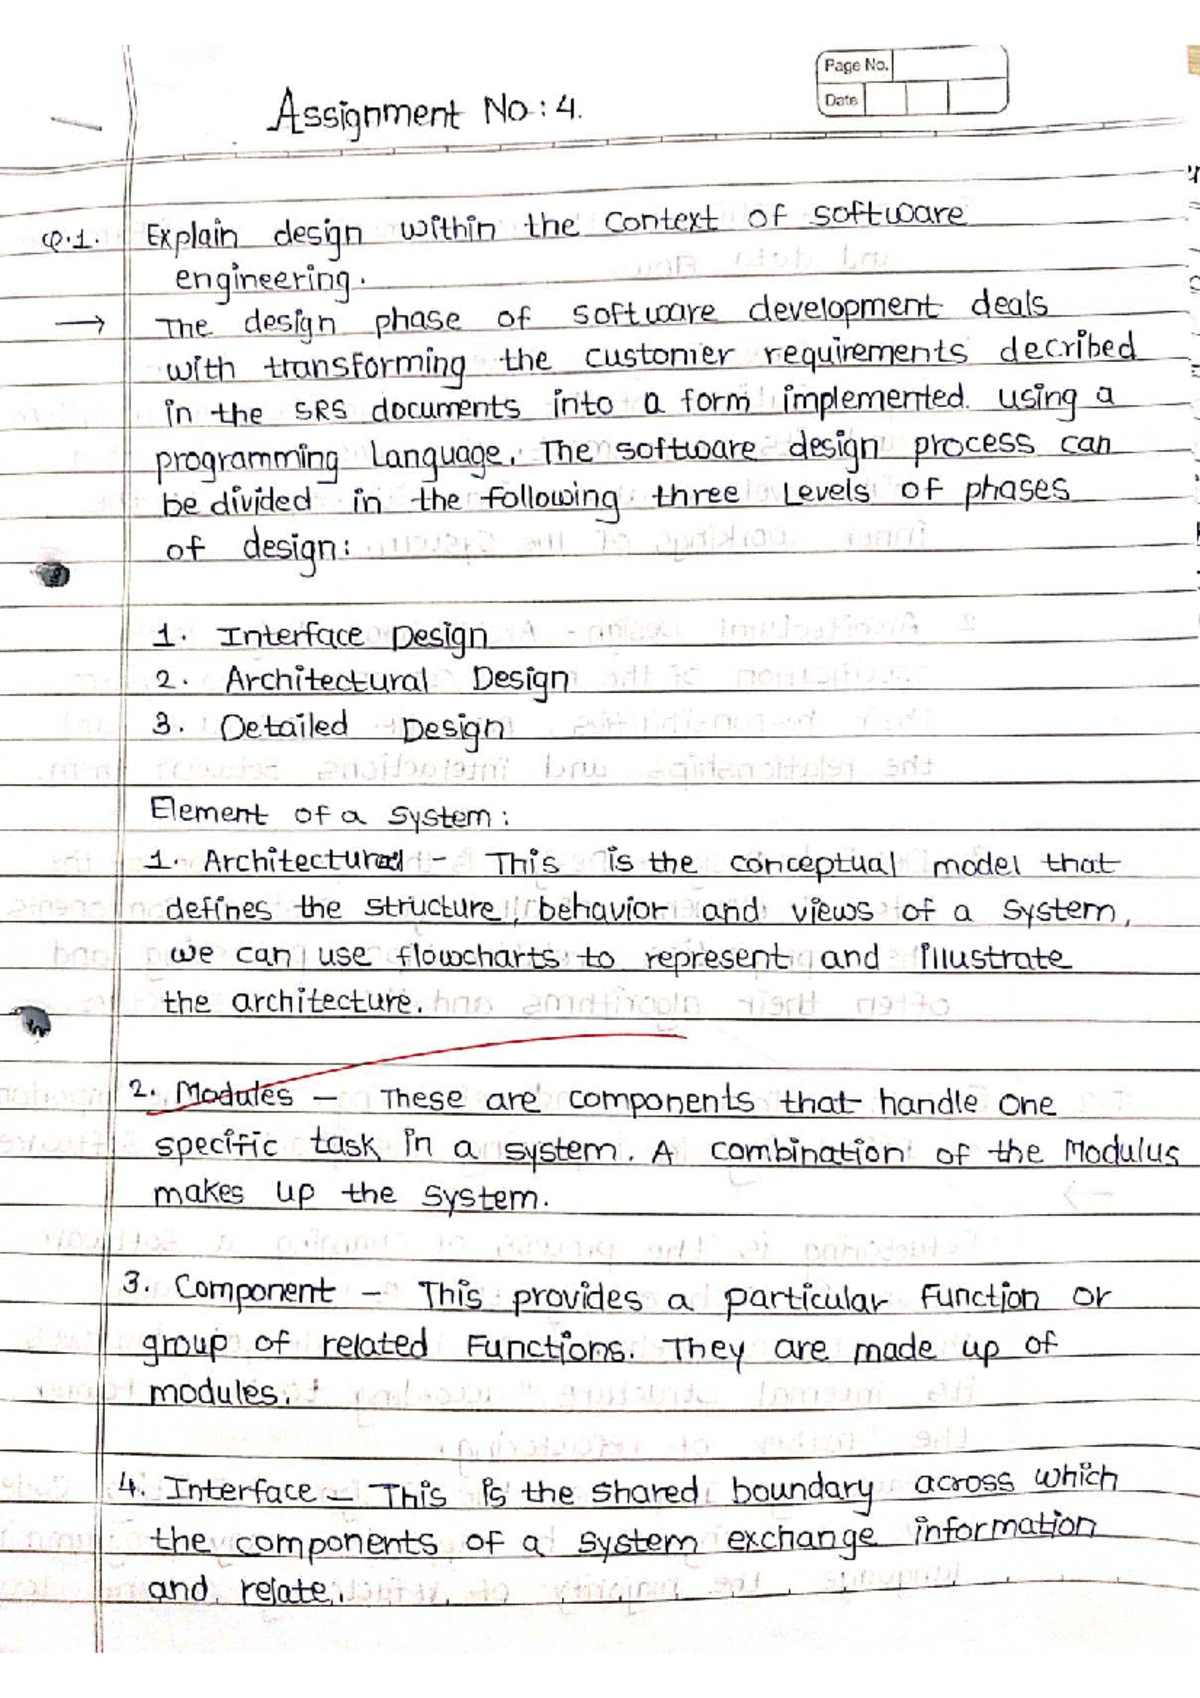 Page No.
Date
Assignment No: 4.
Q.1. Explain design within the context of software
engineering.
→ The design phase of software development deals
with transforming the customer requirements decribed
in the SRS documents into a form implemented using a
programming Language. The software design process can
be divided in the following three Levels of phases
of design:
1. Interface Design
2. Architectural Design
3. Detailed Design
Element of a System:
1. Architectural - This is the conceptual model that
defines the structure, behavior and views of a system,
we can use flowcharts to represent and illustrate
the architecture.
2. Modules - These are components that handle one
specific task in a system. A combination of the Modulus
makes up the system.
3. Component - This provides a particular Function or
group of related Functions. They are made up of
modules.
4. Interface - This is the shared boundary across which
the components of a system exchange information
and relate.